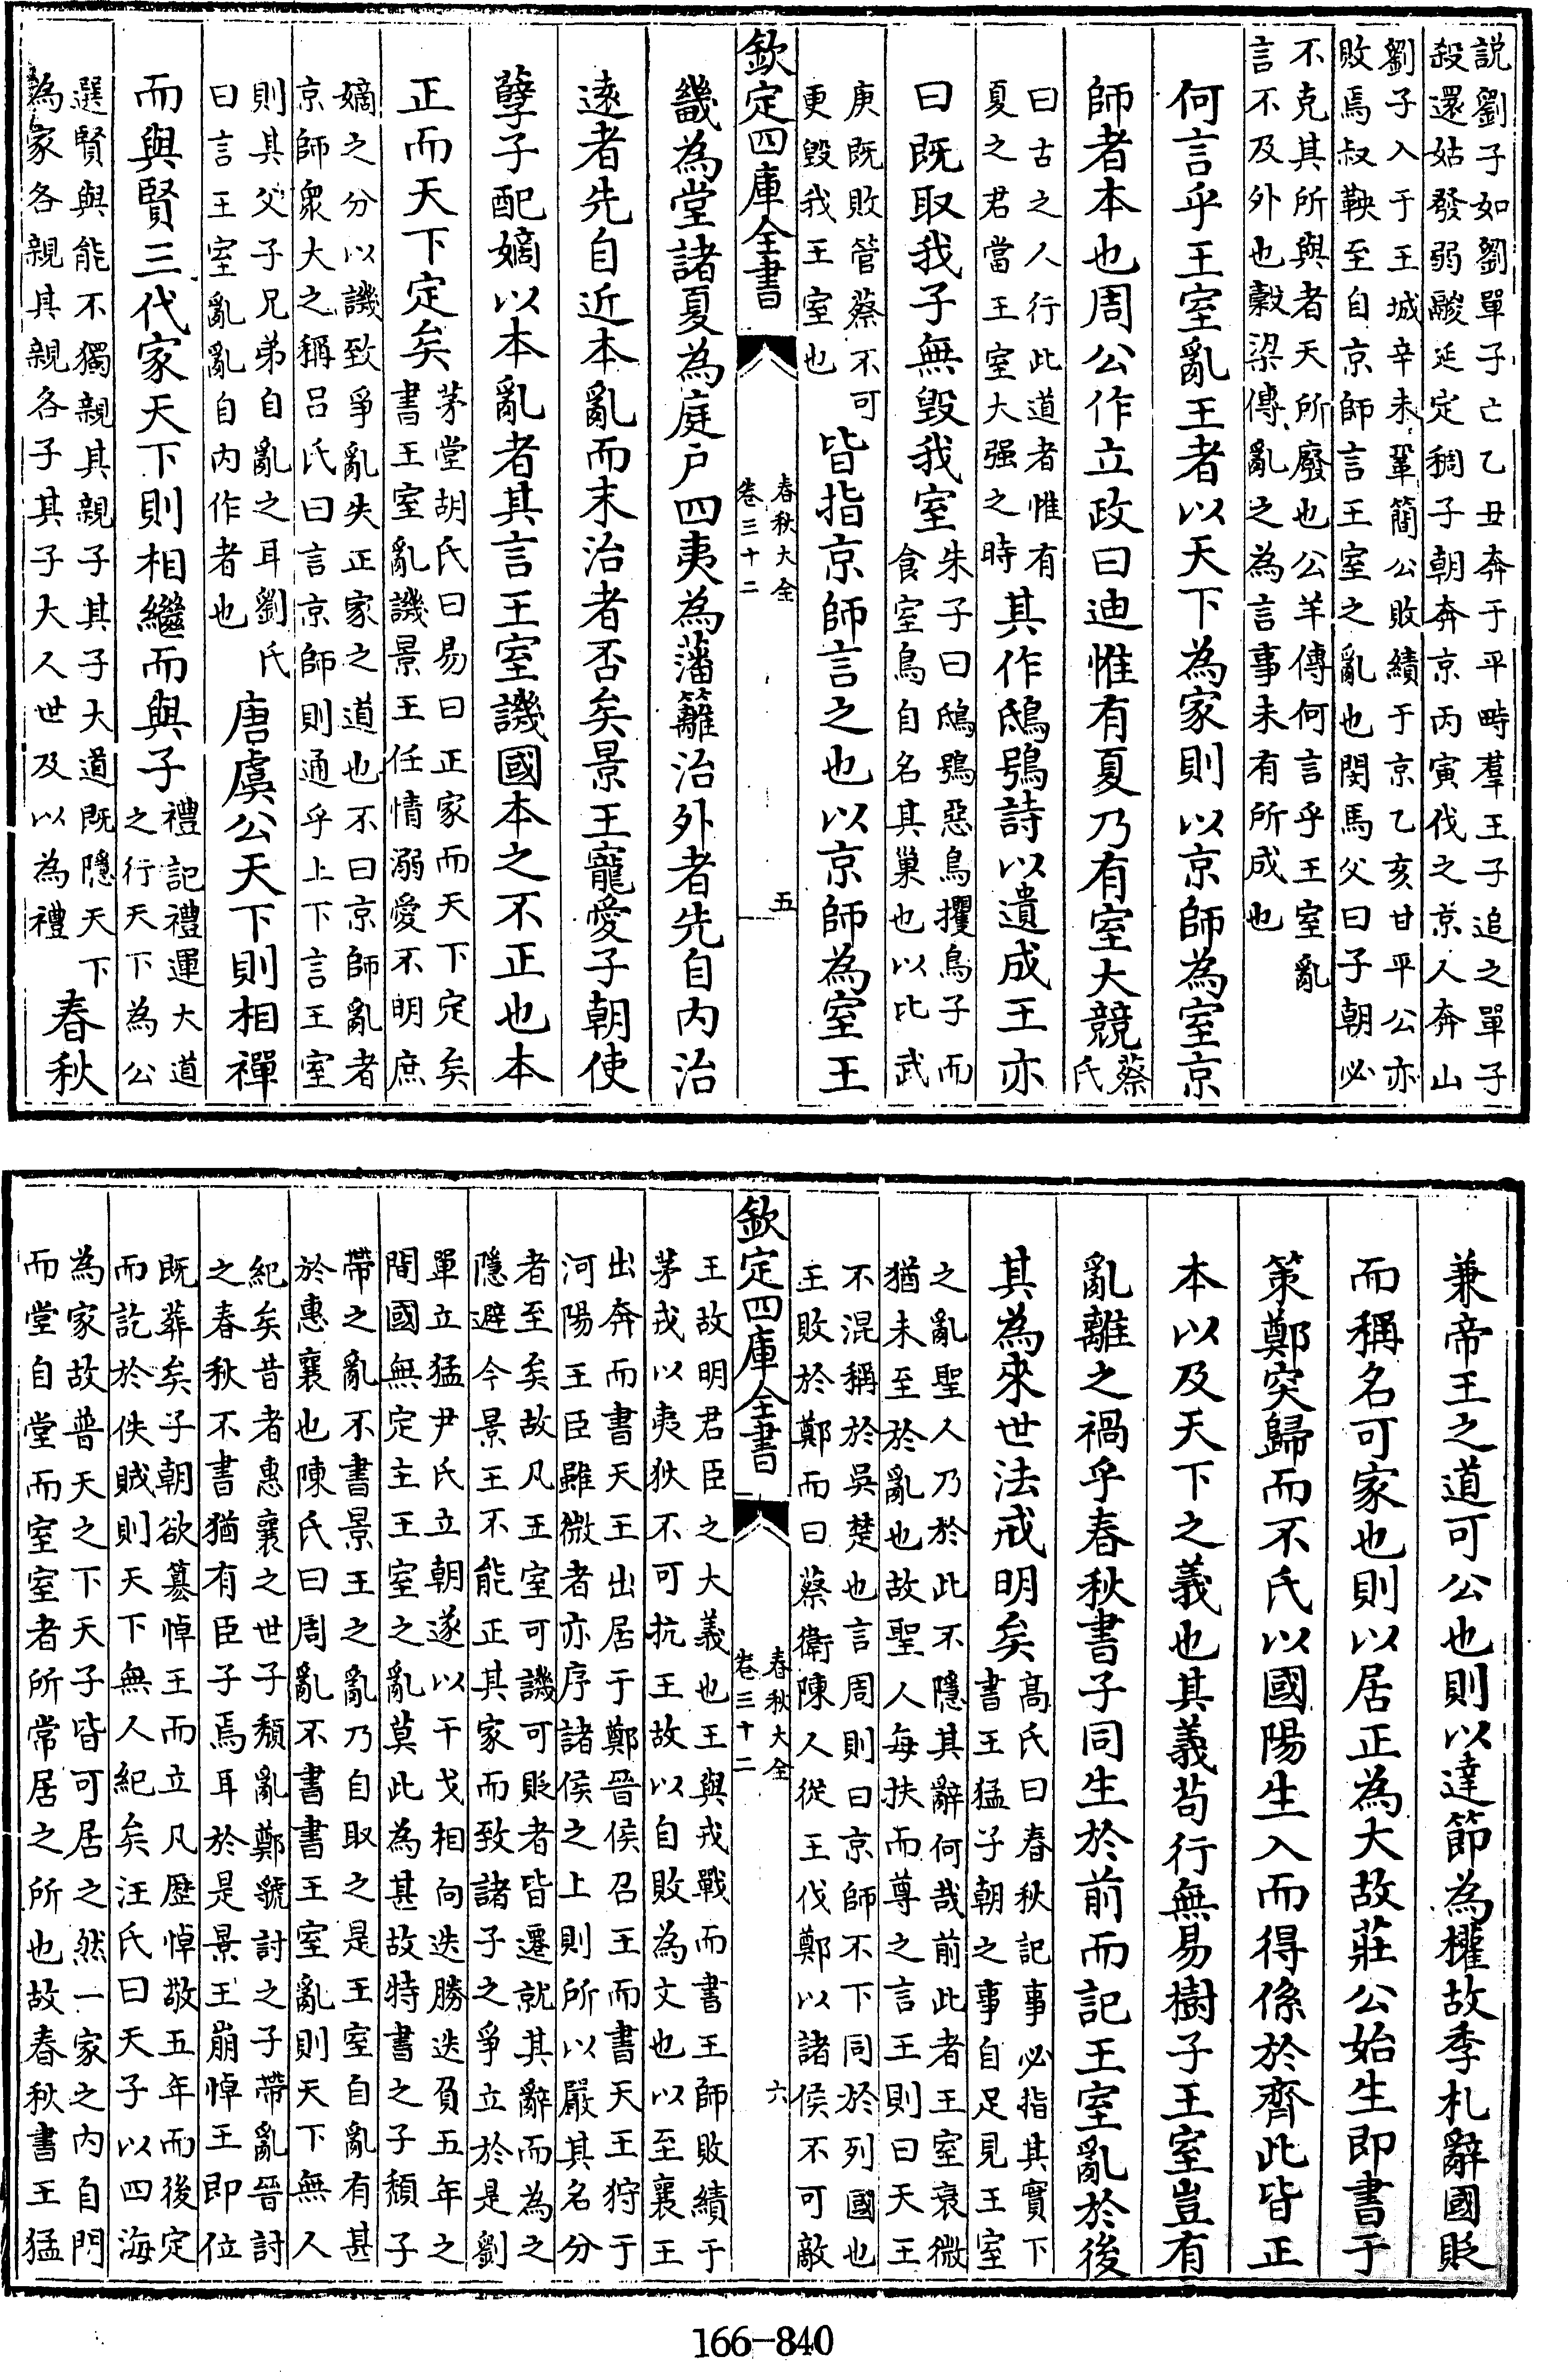 説劉子如劉單子亡乙丑奔于平畤羣王子追之單子
殺還姑發弱鬷延定稠子朝奔京丙寅伐之京人奔山
劉子入于王城辛未鞏簡公敗績于京乙亥甘平公亦
敗焉叔鞅至自京師言王室之亂也閔馬父曰子朝必
不克其所與者天所廢也公羊傳何言乎王室亂
言不及外也穀梁傳亂之為言事未有所成也
何言乎王室亂王者以天下為家則以京師為室京
師者本也周公作立政曰迪惟有夏乃有室大競蔡
氏
曰古之人行此道者惟有
夏之君當王室大强之時
其作鴟鴞詩以遺成王亦
曰既取我子無毁我室
朱子曰鴟鴞惡鳥攫鳥子而
食室鳥自名其巢也以比武
庚既敗管蔡不可
更毁我王室也
皆指京師言之也以京師為室王
欽定四庫全書
春秋大全
卷三十二
五
畿為堂諸夏為庭户四夷為藩籬治外者先自内治
逺者先自近本亂而末治者否矣景王寵愛子朝使
孽子配嫡以本亂者其言王室譏國本之不正也本
正而天下定矣
茅堂胡氏曰易曰正家而天下定矣
書王室亂譏景王任情溺愛不明庶
嫡之分以譏致爭亂失正家之道也不曰京師亂者
京師衆大之稱吕氏曰言京師則通乎上下言王室
則其父子兄弟自亂之耳劉氏
曰言王室亂亂自内作者也
唐虞公天下則相禪
而與賢三代家天下則相繼而與子
禮記禮運大道
之行天下為公
選賢與能不獨親其親子其子大道既隱天下
為家各親其親各子其子大人世及以為禮
春秋
兼帝王之道可公也則以達節為權故季札辭國貶
而稱名可家也則以居正為大故莊公始生即書于
策鄭突歸而不氏以國陽生入而得係於齊此皆正
本以及天下之義也其義苟行無易樹子王室豈有
亂離之禍乎春秋書子同生於前而記王室亂於後
其為來世法戒明矣
髙氏曰春秋記事必指其實下
書王猛子朝之事自足見王室
之亂聖人乃於此不隱其辭何哉前此者王室衰微
猶未至於亂也故聖人每扶而尊之言王則曰天王
不混稱於吳楚也言周則曰京師不下同於列國也
王敗於鄭而曰蔡衛陳人從王伐鄭以諸侯不可敵
欽定四庫全書
春秋大全
卷三十二
六
王故明君臣之大義也王與戎戰而書王師敗績于
茅戎以夷狄不可抗王故以自敗為文也以至襄王
出奔而書天王出居于鄭晉侯召王而書天王狩于
河陽王臣雖微者亦序諸侯之上則所以嚴其名分
者至矣故凡王室可譏可貶者皆遷就其辭而為之
隱避今景王不能正其家而致諸子之爭立於是劉
單立猛尹氏立朝遂以干戈相向迭勝迭負五年之
間國無定主王室之亂莫此為甚故特書之子頽子
帶之亂不書景王之亂乃自取之是王室自亂有甚
於惠襄也陳氏曰周亂不書書王室亂則天下無人
紀矣昔者惠襄之世子頽亂鄭虢討之子帶亂晉討
之春秋不書猶有臣子焉耳於是景王崩悼王即位
既葬矣子朝欲簒悼王而立凡歴悼敬五年而後定
而訖於佚賊則天下無人紀矣汪氏曰天子以四海
為家故普天之下天子皆可居之然一家之内自門
而堂自堂而室室者所常居之所也故春秋書王猛
166-840